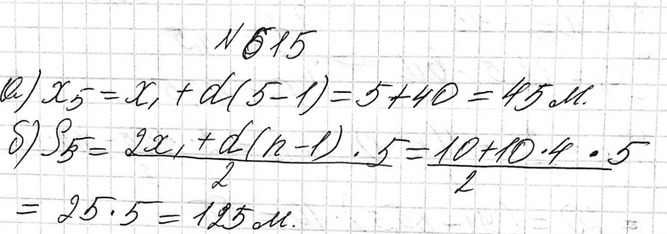 N 615
а) x₅ = x₁ + d(5-1) = 5+40 = 45 м.
б) S₅ = 2x₁ + d(n-1) / 2 · 5 = 10+10·4 / 2 · 5
= 25·5 = 125 м.